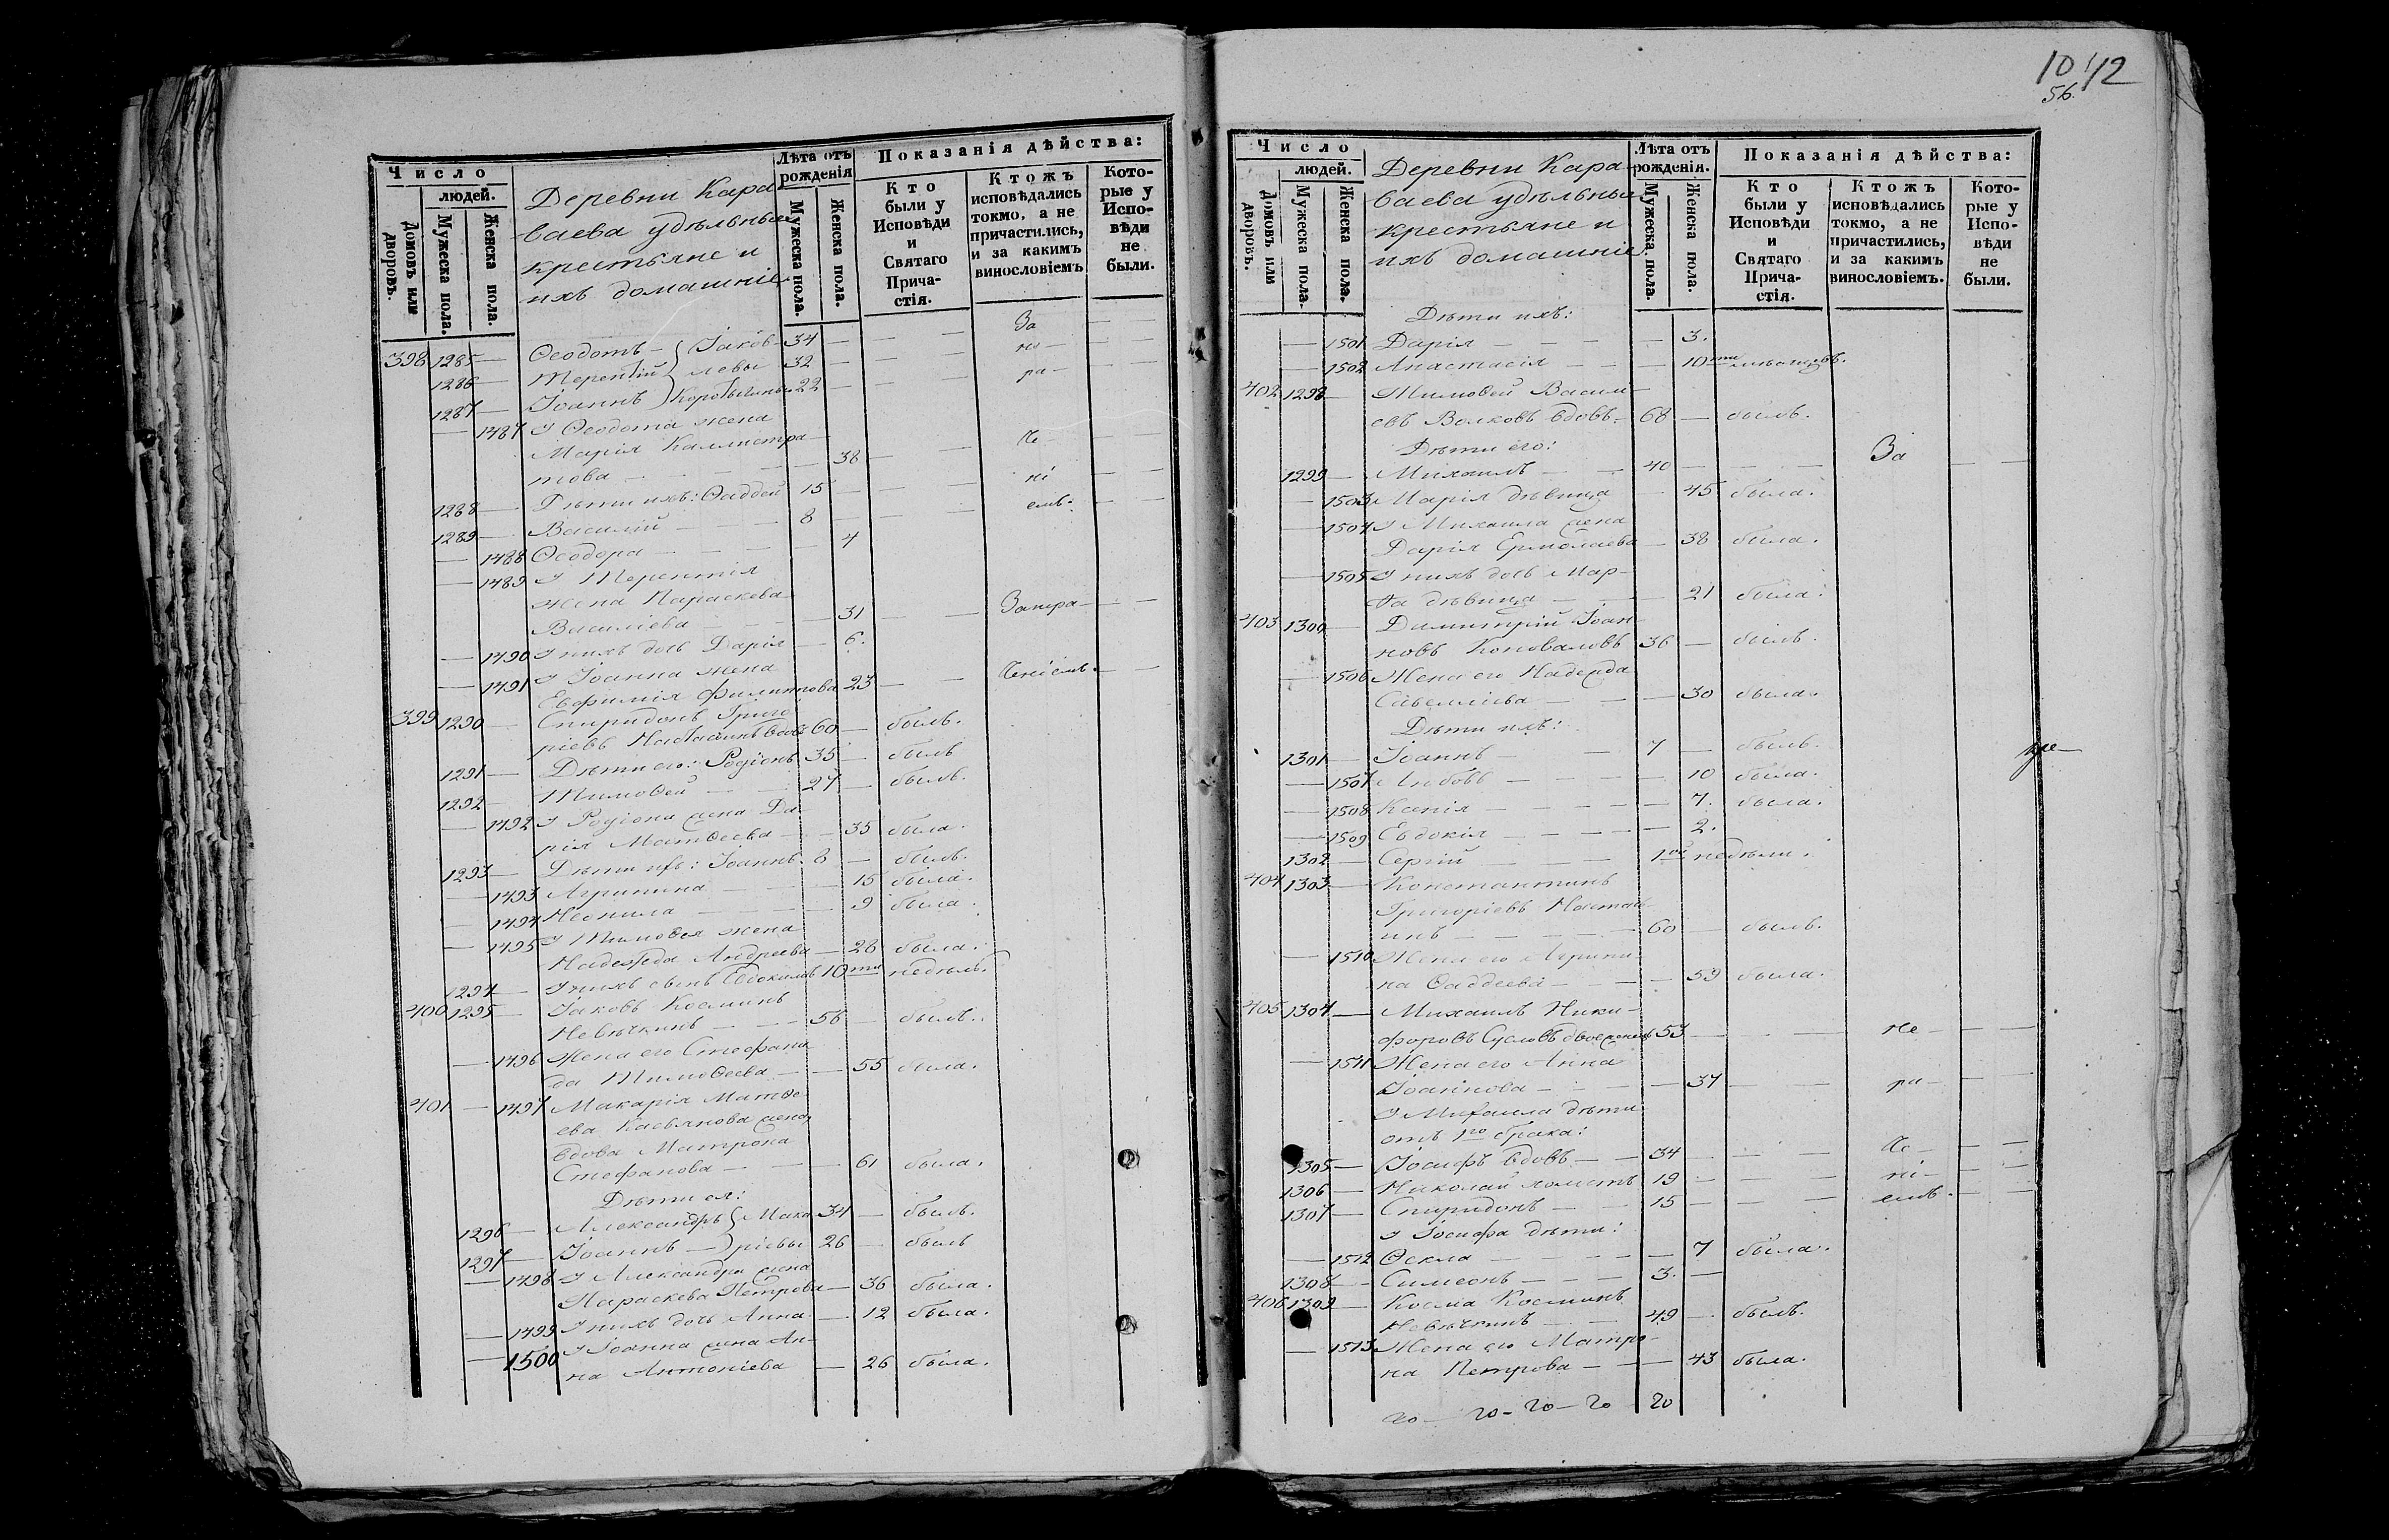 10 42
56.
Число
людей.
Домовъ или дворовъ.
Мужеска пола.
Женска пола.
Деревни Кара-
ваева удѣльные
крестьяне и
ихъ домашніе
Лѣта отъ рожденія
Мужеска пола.
Женска пола.
Показанія дѣйства:
Кто были у Исповѣди и Святаго Прича-стія.
Ктожъ исповѣдались токмо, а не причастились, и за какимъ винословіемъ
Кото-рые у Испо-вѣди не были.
398 1285 — Ѳеодотъ — Іаков- 34 — — За — —
1286 — Терентій левы 32 — — не — —
1287 — Іоаннъ 22 — — ра — —
— 1487 У Ѳеодота жена
Марія Каллистра-
това — — — 38 — — че — —
1288 — Дѣти ихъ: Ѳаддей 15 — — — ні — —
1289 — Василій — — 8 — — емъ. — —
— 1488 Ѳеодора — — — 4
— 1489 У Терентія
жена Параскева
Василіева — — — 31 — — Занера — —
— 1490 У нихъ дочь Дарія — 6.
— 1491 У Іоанна жена
Евфимія Филиппова 23 — — ченіемъ. — —
399 1290 — Спиридонъ Григо-
ріевъ вдовъ 60 — былъ.
1291 — Дѣти его: Родіонъ 35 — былъ
1292 — Тимоѳей — — 27 — былъ.
— 1492 У Родіона жена Да-
рія Матѳеева — — 35 была.
1293 — Дѣти ихъ: Іоаннъ. 8 — былъ.
— 1493 Агрипина — — — 15 была.
— 1494 Неонила — — — 9 была.
— 1495 У Тимоѳея жена
Надежда Андреева — 28 была.
1294 — У нихъ сынъ Евдокимъ 10ти недѣль.
400 1295 — Іаковъ Косминъ
Невѣчкинъ — — 56 — былъ.
— 1496 Жена его Стефани-
да Тимоѳеева — — 55 была.
401 — 1497 Макарія Матѳе-
ева Касьянова жена
вдова Матрона
Стефанова — — — 61 была.
Дѣти ея:
1296 — Александръ Мака- 34 — былъ.
1297 — Іоаннъ — ріевы 26 — былъ
— 1498 У Александра жена
Параскева Петрова — 36 была.
— 1499 У нихъ дочь Анна — 12 была.
— 1500 У Іоанна жена Ан-
на Антоніева — 26 была.
Число
людей.
Домовъ или дворовъ.
Мужеска пола.
Женска пола.
Деревни Кара-
ваева удѣльные
крестьяне и
ихъ домашніе
Лѣта отъ рожденія.
Мужеска пола.
Женска пола.
Показанія дѣйства:
Кто были у Исповѣди и Святаго Прича-стія.
Ктожъ исповѣдались токмо, а не причастились, и за какимъ винословіемъ.
Кото-рые у Испо-вѣди не были.
Дѣти ихъ:
— 1501 Дарія — — — — 3.
— 1502 Анастасія — — — 10ти мѣсяцевъ.
402 1298 — Тимоѳей Васили-
евъ Волковъ вдовъ. 68 — былъ.
Дѣти его:
1299 — Михаилъ — — 40 — — — За — —
— 1503 Марія дѣвица — 45 была.
— 1504 У Михаила жена
Дарія Ермолаева — 38 была.
— 1505 У нихъ дочь Мар-
ѳа дѣвица — — — 21 была.
403 1300 — Димитрій Іоан-
новъ Коноваловъ 36 — былъ.
— 1506 Жена его Надежда
Савелліева — — — 30 была.
Дѣти ихъ:
1301 — Іоаннъ — — 7 — былъ.
— 1507 Любовь — — — — 10 была.
— 1508 Ксенія — — — — 7. была.
— 1509 Евдокія — — — — 2.
1302 — Сергій — — — 1ой недѣли.
404 1303 — Константинъ
Григоріевъ
инъ — — — — 60 — былъ.
— 1510 Жена его Агрипи-
на Ѳаддеева — — — 59 была.
405 1304 — Михаилъ Ники-
форовъ Сусловъ двоеженецъ 53 — — — не — — —
— 1511 Жена его Анна
Іоаннова — — — — 37 — — ра — — —
У Михаила дѣти
отъ 1го брака:
1305 — Іосифъ вдовъ — — 34 — — — че — — —
1306 — Николай холостъ 19 — — — ні — — —
1307 — Спиридонъ — — 15 — — — емъ. — —
У Іосифа дѣти:
— 1512 Ѳекла — — — — 7 была.
1308 — Симеонъ — — — 3. —
406 1309 — Косма Косминъ
Невѣчкинъ — — 49 — былъ.
— 1513 Жена его Матро-
на Петрова — — — 43 была.
20 — 20 — 20 — 20 20